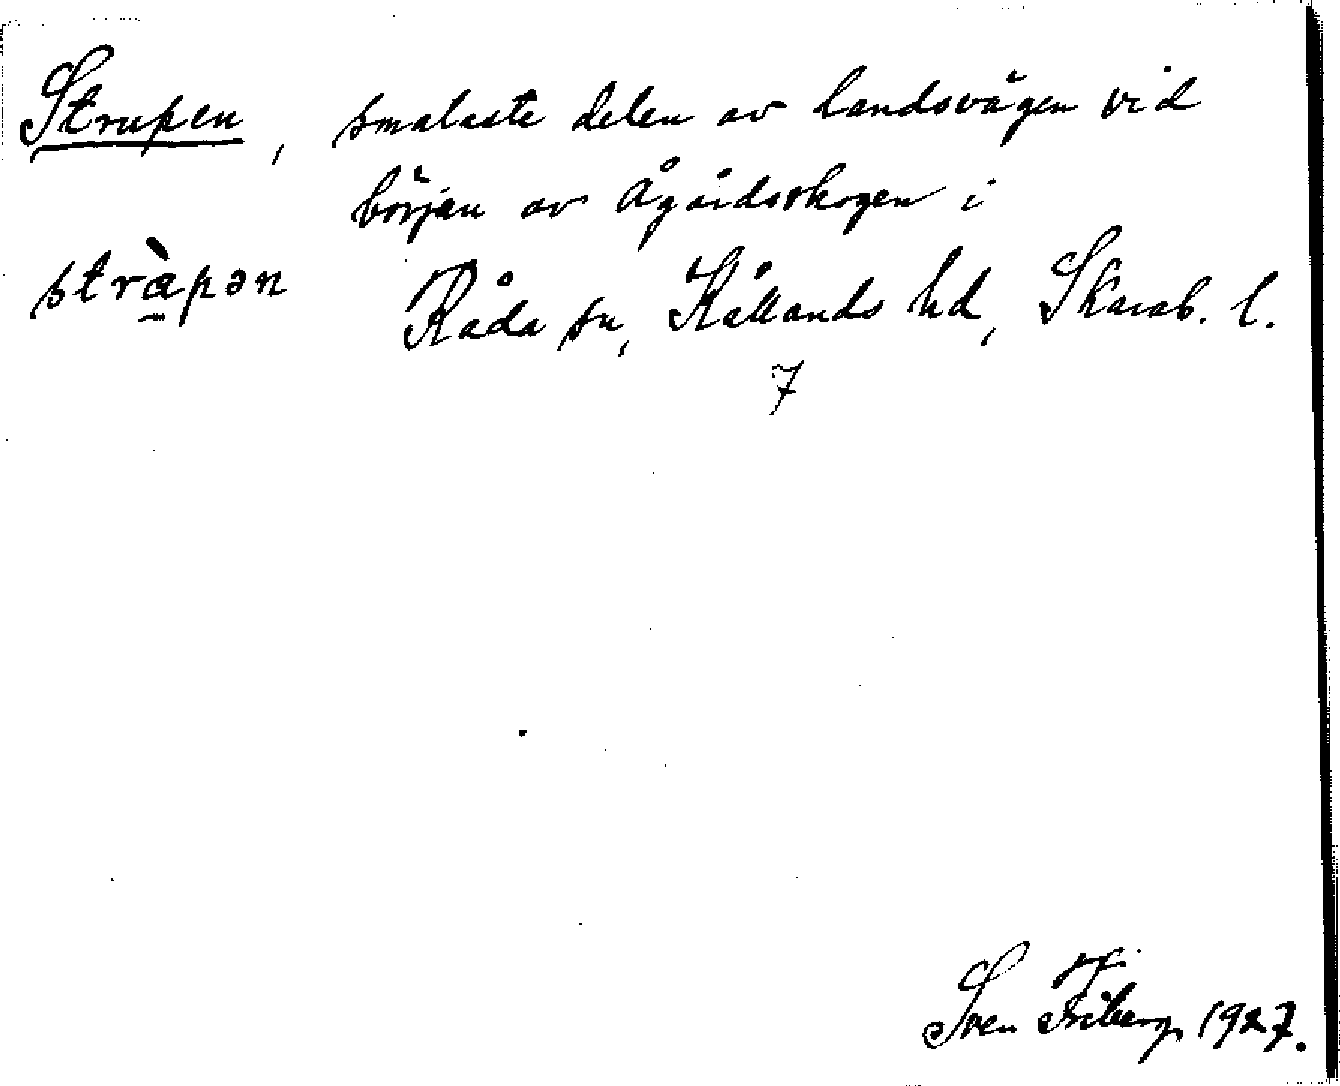 Strupen, smalaste delen av landsvägen vid
början av Ågårdsskogen i
stràpən Råda sn, Kållands hd, Skarab. l.
7
Sven Friberg 1927.